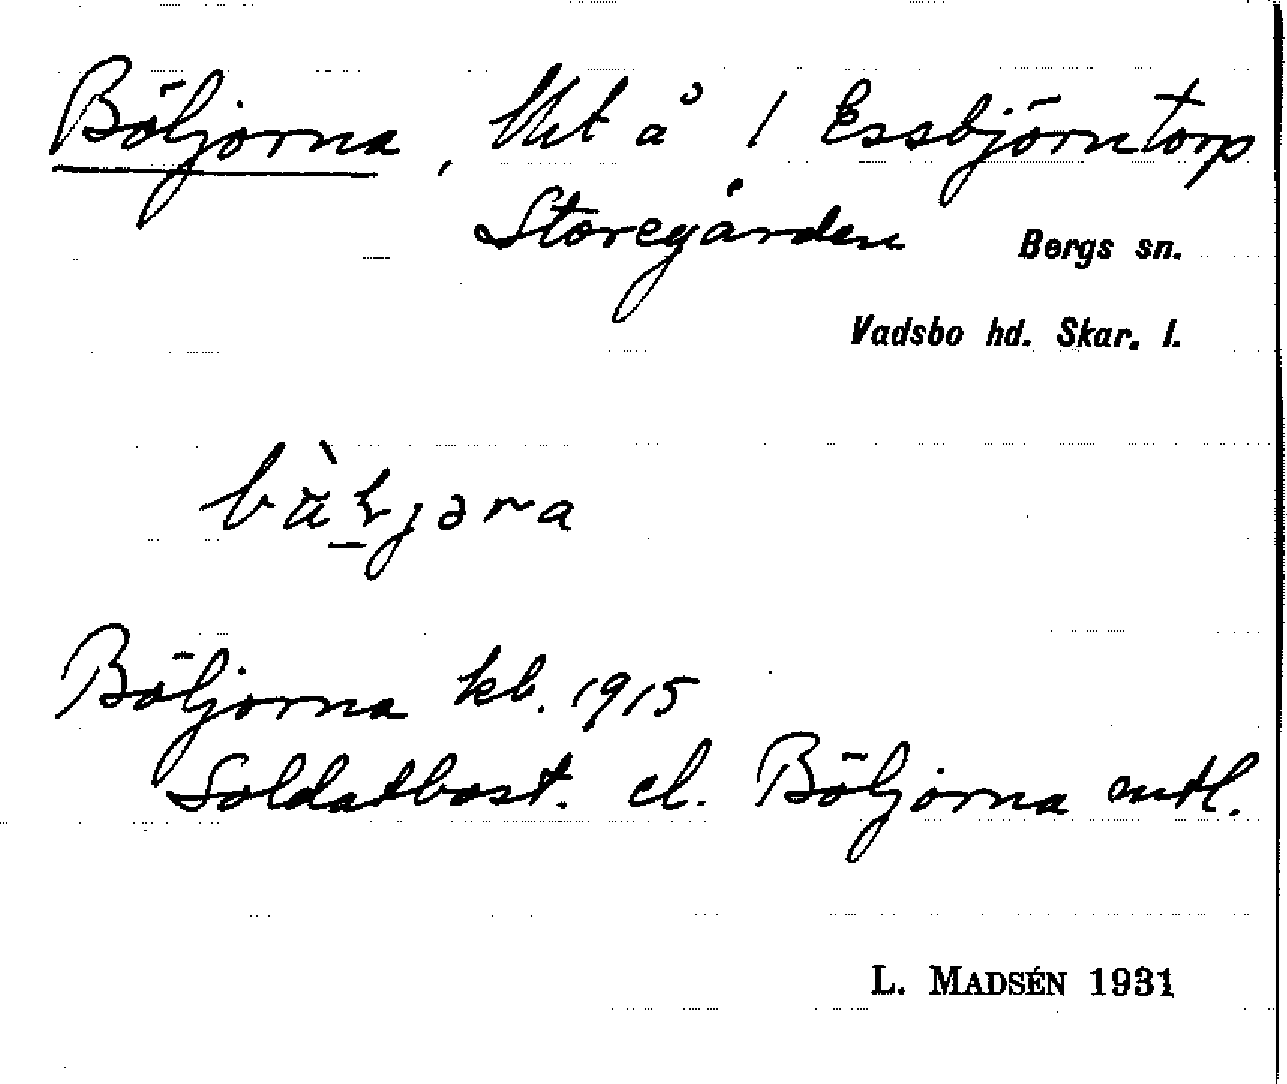 Böljorna, lht å 1 Essbjörntorp
Storegården Bergs sn.
Vadsbo hd. Skar. l.
Böljorna kb. 1915
Soldatbost. el. Böljorna mtl.
L. MADSÉN 1931